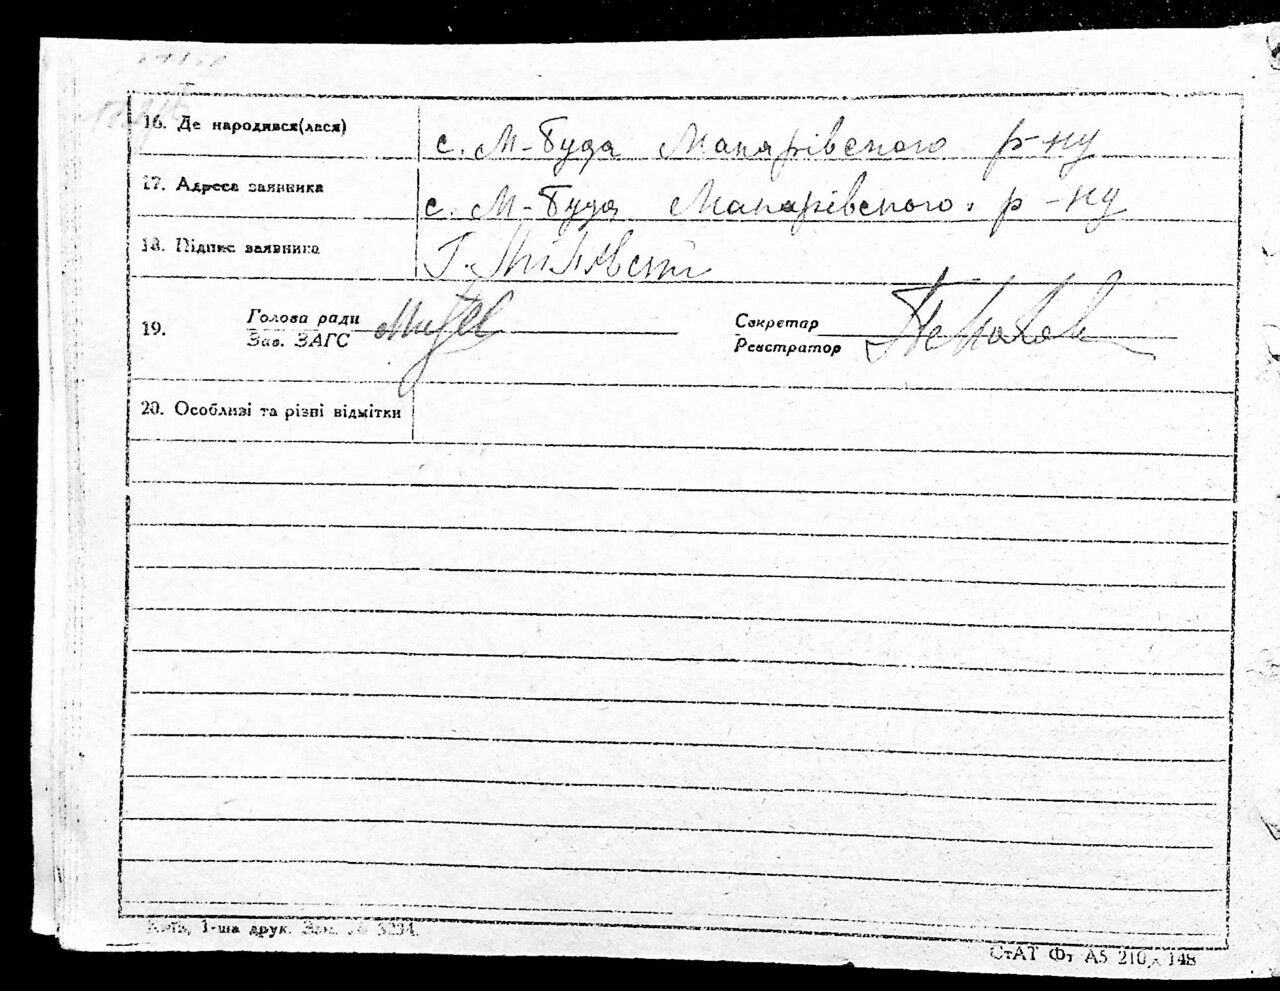 16. Де народився(лася)
с. М-Буда Макарівського р-ну
17. Адреса заявника
с. М-Буда Макарівського р-ну
18. Підпис заявника
Г.
19.
Голова ради
Зав. ЗАГС
Секретар
Реєстратор
20. Особливі та різні відмітки
Київ, 1-ша друк. Зам. № 5234.
СтАТ Фт А5 210 х 148